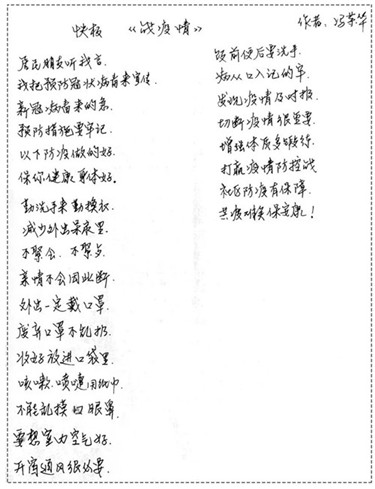 快板 《战疫情》
作者：冯荣华
居民朋友听我言.
我把预防冠状病毒来宣传.
新冠病毒来的急.
预防措施要牢记.
以下防疫做的好.
保你健康身体好.
勤洗手来勤换衣.
减少外出呆家里.
不聚会.不聚点.
亲情不会因此断.
外出一定戴口罩.
废弃口罩不乱扔.
收好放进口袋里.
咳嗽.喷嚏用纸巾.
不能乱摸口眼鼻.
要想室内空气好.
开窗通风很必要.
饭前便后要洗手.
病从口入记的牢.
发现疫情及时报.
切断疫情很重要.
增强体质多锻炼.
打赢疫情防控战
社区防疫有保障.
共度难关保安康！